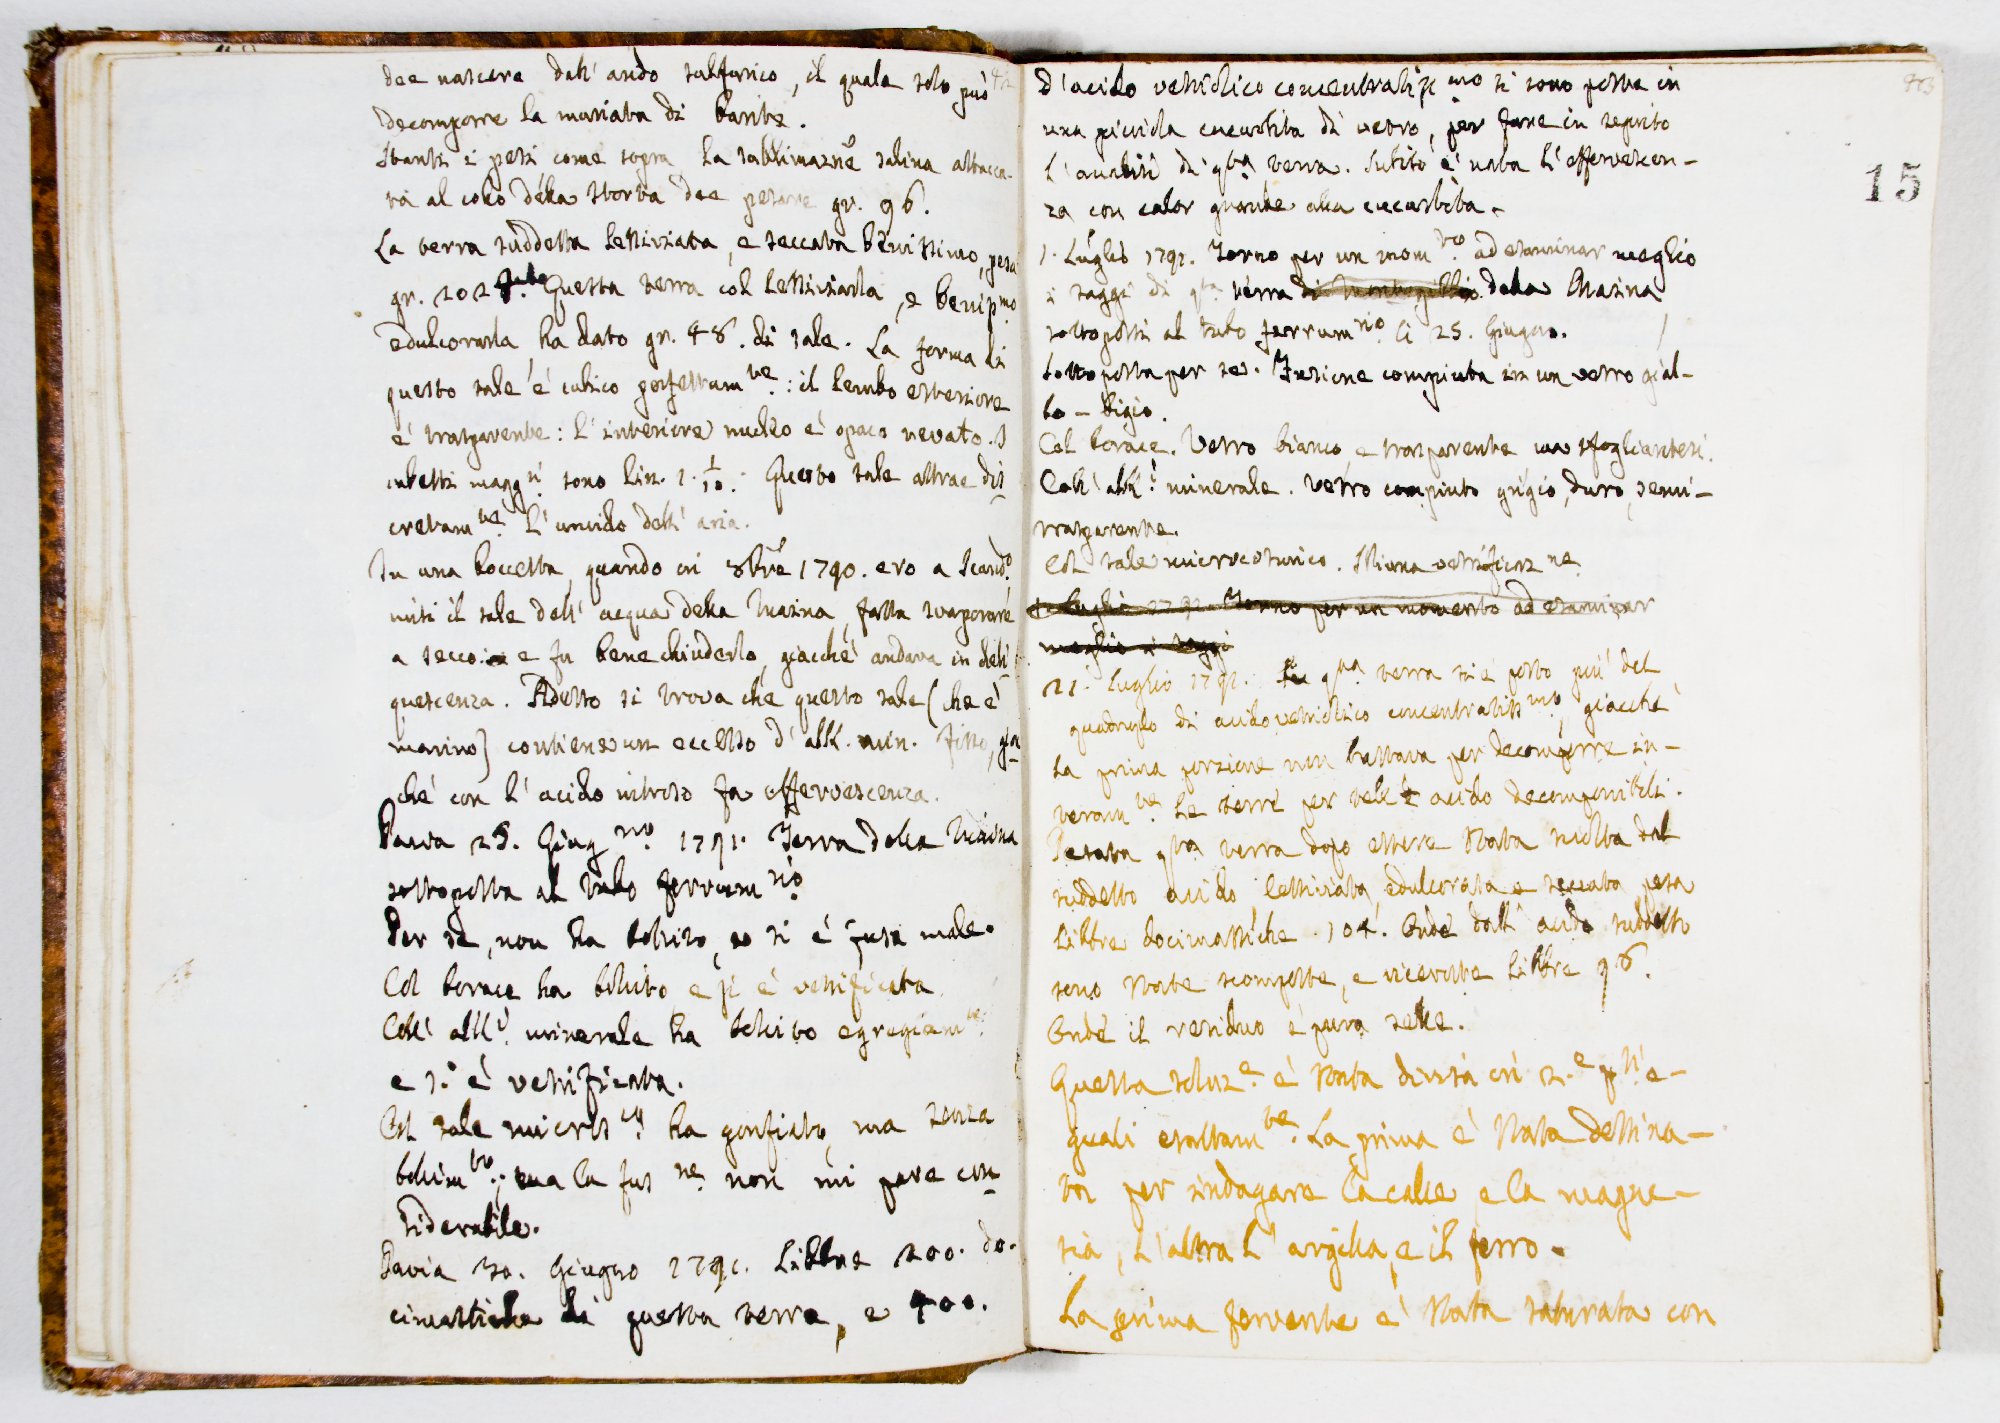 dee nascere dall' acido solforico, il quale solo può
decomporre la muriata di barite.
Stanti i pesi come sopra la sublimazne salina attacca-
ta al collo della storta dee pesare gr. 96.
La terra suddetta lessiviata, e seccata benissimo, pesa
gr. 202. Questa terra col lessiviarla, e benissmo
edulcorarla ha dato gr. 48. di sale. La forma di
questo sale è cubico perfettamte: il lembo esteriore
è trasparente: l' interiore nucleo è opaco nevato. I
cubetti maggri sono lin. 1. 1/10. Questo sale attrae dis-
cretamte l' umido dell' aria.
In una boccetta, quando in 8bre 1790. ero a Scando
misi il sale dell' acqua della Masina, fatta svaporare
a secco: e fu bene chiuderlo, giacchè andava in deli-
quescenza. Adesso si trova che questo sale (che è
marino) contiene un eccesso d' alk. min. fisso, gia-
chè con l' acido nitroso fa effervescenza.
Pavia 25. Giugno 1791. Terra della Masina
sottoposta al tubo ferrumrio
Per se, non ha bollito, e si è fusa male.
Col borace ha bollito e si è vetrificata
Coll' alki minerale ha bollito egregiamte
e si è vetrificata.
Col sale micros.co ha gonfiato, ma senza
bollimto; ma la fusne non mi pare con-
siderabile.
Pavia 30. Giugno 1791. Libbre 200. do-
cimastiche di questa terra, e 400.
d' acido vetriolico concentratissmo si sono poste in
una piccola cucurbita di vetro, per fare in seguito
l' analisi di qta terra. Subito è nata l' effervescen-
za con calor grande alla cucurbita.
15
1. Luglio 1791. Torno per un momto ad esaminar meglio
i saggi di qta terra di della Masina
sottoposti al tubo ferrumrio li 25. Giugno.
Sottoposta per se. Fusione compiuta in un vetro gial-
lo-bigio.
Col borace. Vetro bianco e trasparente
Coll' alki minerale. Vetro compiuto grigio, duro, semi-
trasparente.
Col sale microcosmico. Ottima vetrificazne
1. Luglio 1791. Torno per un momento ad esaminar
meglio i saggi
21. Luglio 1791. In qta terra si è posto più del
quadruplo di acido vetriolico concentratissmo, giacchè
la prima porzione non bastava per decomporre in-
teramte le terre per tale acido decomponibili.
Pesata qta terra dopo essere stata sciolta dal
suddetto acido, lessiviata, edulcorata e seccata pesa
Libbre docimastiche 104. Onde dall' acido suddetto
sono state scomposte, e ricevute Libbre 96.
Onde il residuo è pura selce.
Questa soluze è stata divisa in 2.e pti e-
guali esattamte. La prima è stata destina-
ta per indagare la calce, e la magne-
sia, l' altra l' argilla, e il ferro.
La prima fervente è stata saturata con